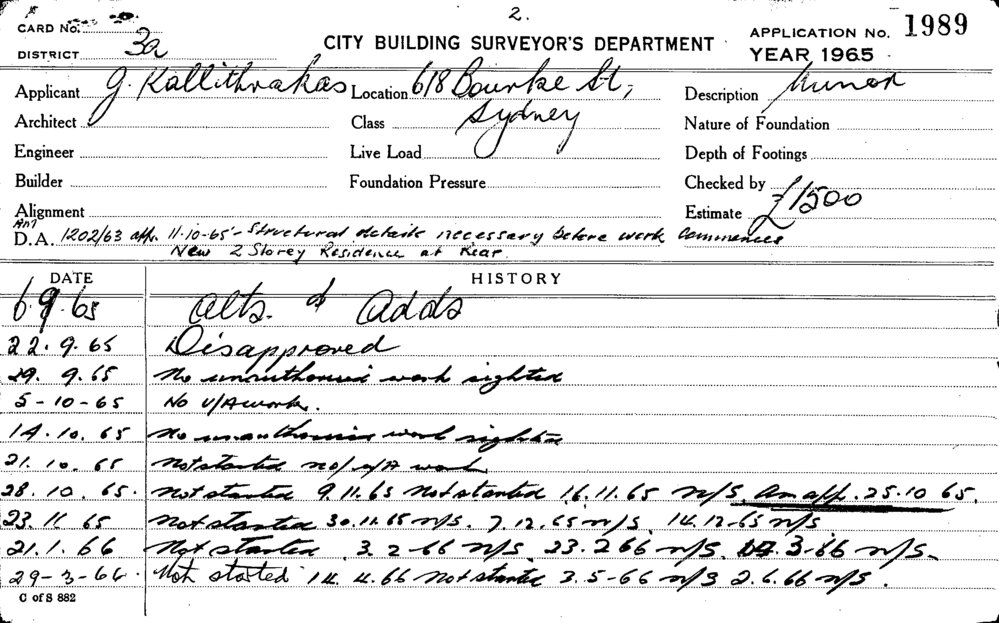 2.
CARD No.
DISTRICT 3a
CITY BUILDING SURVEYOR'S DEPARTMENT
APPLICATION No. 1989
YEAR 1965
Applicant J. Kallithrakas Location 618 Bourke St, Description Minor
Architect Class Sydney Nature of Foundation
Engineer Live Load Depth of Footings
Builder Foundation Pressure Checked by
Alignment Estimate £1500
D.A. 1202/63 app. 11-10-65 - Structural details necessary before work commences
New 2 Storey Residence at Rear.
DATE HISTORY
6.9.65 Alts. & Adds
22.9.65 Disapproved
29.9.65 No unauthorised work sighted
5-10-65 No U/A work.
14.10.65 No unauthorised work sighted
21.10.65 Not started no/ u/A work
28.10.65. Not started 9.11.65 Not started 16.11.65 n/S. Am app. 25.10 65.
23.11.65 Not started 30.11.65 n/s. 7.12.65 n/s. 14.12.65 n/s
21.1.66 Not started 3.2-66 n/s. 23.2 66 n/s. 3-66 n/s.
29-3-66. Not started 14.4.66 Not started 3.5-66 n/s 2.6.66 n/s.
C of S 882